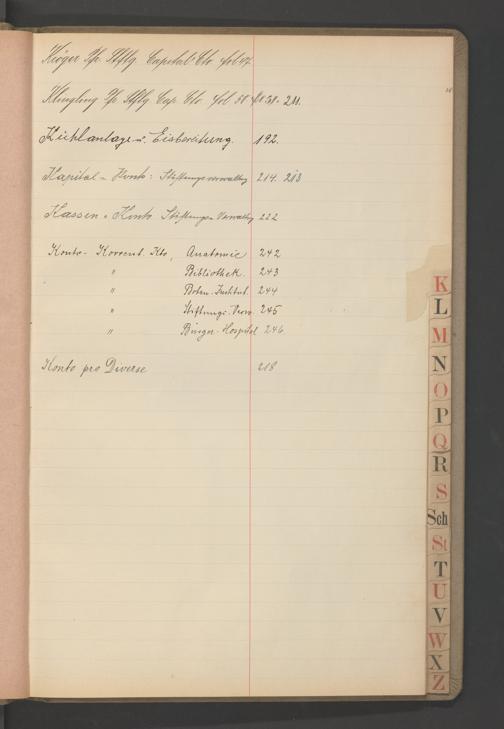 Capital Cto fol 47
Klingling Sp. Stftg Cap. Cto fol 58 211.
Kühlanlage u. Eisbereitung. 192.
Kapital-Konto: Stiftungsverwaltg 214. 213
Kassen-Konto Stiftungen Verwaltg 222
Konto-Korrent. Kto, Anatomie 242
" Bibliothek. 243
" Botan. Institut. 244
" Stiftungs-Verw. 245
" Bürger-Hospital 246
Konto pro Diverse 218
K
L
M
N
O
P
Q
R
S
Sch
St
T
U
V
W
X
Z